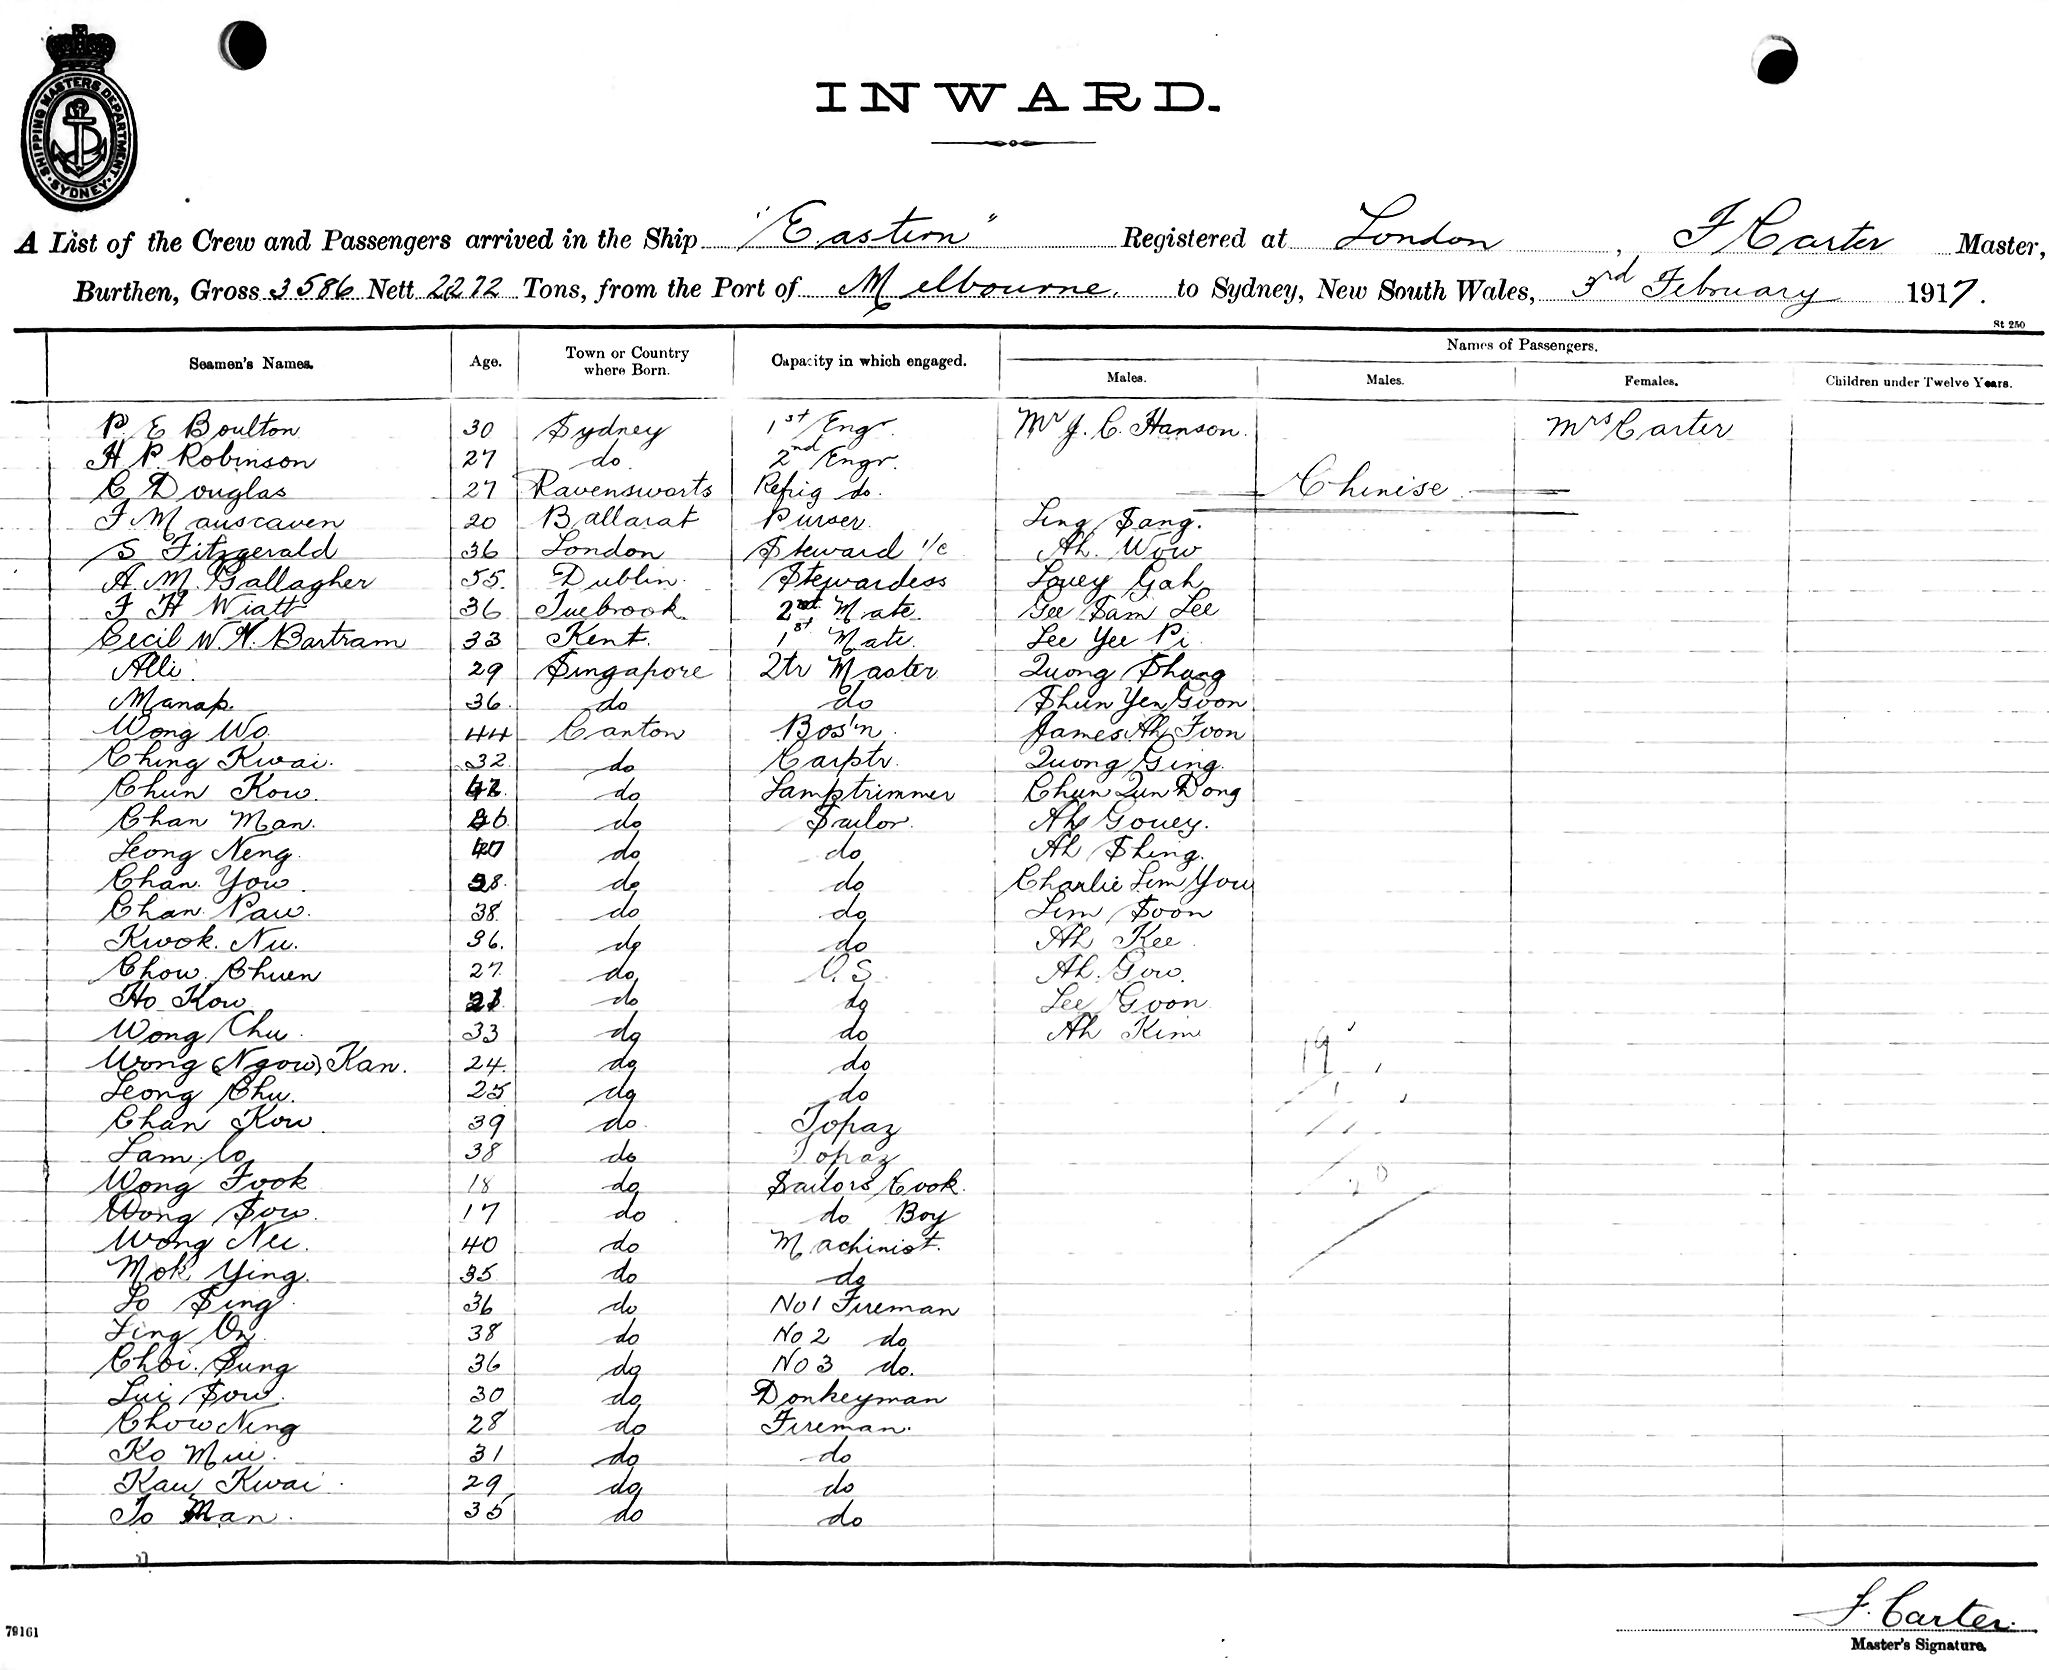 SHIPPING MASTERS DEPARTMENT · SYDNEY ·
INWARD.
A List of the Crew and Passengers arrived in the Ship "Eastern" Registered at London, F Carter Master,
Burthen, Gross 3586 Nett 2272 Tons, from the Port of Melbourne. to Sydney, New South Wales, 3rd February 1917.
St 250
Seamen's Names. Age. Town or Country where Born. Capacity in which engaged. Names of Passengers.
Males. Males. Females. Children under Twelve Years.
P. E Boulton 30 Sydney 1st Engr. Mr J. C. Hanson. Mrs Carter
H P. Robinson 27 do 2nd Engr.
C Douglas 27 Ravensworts Refrig do. Chinise
F. Mauscaven 20 Ballarat Purser. Sing Sang.
S Fitzgerald 36 London Steward 1/c Ah. Wow
A. M. Gallagher 55. Dublin. Stewardess Louey Gah
F H Wiatt 36 Tuebrook 2nd Mate Gee Sam Lee
Cecil W. H. Bartram 33 Kent. 1st Mate. Lee Yee Pi
Alli. 29 Singapore 2tr Master Quong Shang
Manap. 36. do do Shun Yen Goon
Wong Wo 44 Canton Bos'n. James Ah Foon
Ching Kwai. 32. do Carptr. Quong Ging.
Chun Kow. do Lamptrimmer Chun Qun Dong
Chan Man. do Sailor. Ah Gouey.
Leong Neng. do do Ah Shing.
Chan. You. 38. do do Charlie Lim You
Chan. Paw. 38. do do Lim Soon
Kwok. Nu. 36. do do Ah Kee.
Chow. Chuen 27. do O.S. Ah. Gow.
Ho Kow do do Lee Goon
Wong Chu. 33 do do Ah Kim
Wong (Ngow) Kan. 24. do do 19
Leong Chu. 25 do do
Chan Kow 39 do. Topaz
Lam. Co 38 do Topaz
Wong Fook 18 do Sailors Cook.
Wong Sow. 17 do do Boy
Wong Nei. 40 do Machinist.
Mok Ying. 35 do do
Lo Sing 36 do No 1 Fireman
Ling On. 38 do No 2 do
Choi. Sung 36 do No 3 do.
Lui Sow. 30 do Donkeyman
Chow Ning 28 do Fireman.
Ko Mui. 31 do do
Kau Kwai. 29 do do
To Man. 35 do do
F. Carter.
Master's Signature.
79161